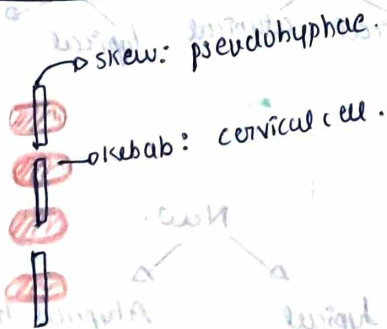 skew: pseudohyphae.
kebab: cervical cell.